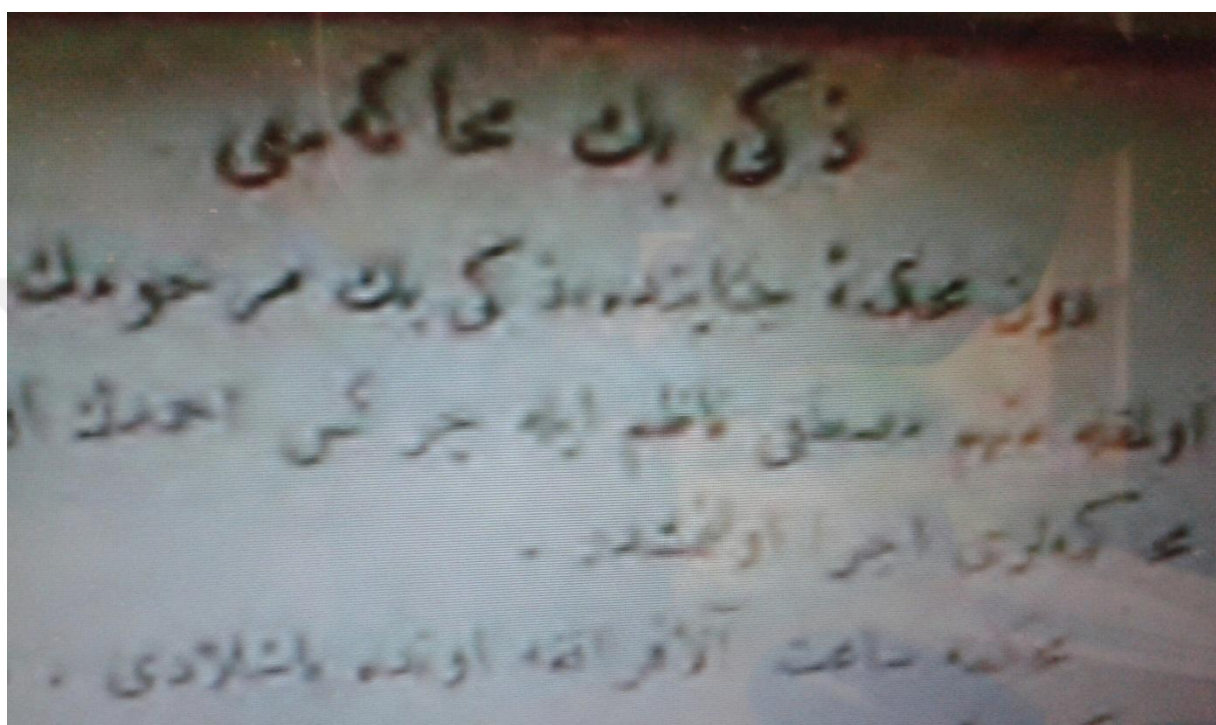 ذكی بك محاكمه‌سی
دون محكمهٔ جنایتده ذكی بك مرحومك
اولمقله متهم مصطفی ناظم ایله چركس احمدك
محاكمه‌لری اجرا اولنمشدر .
محاكمه ساعت آلافرانغه اونده باشلادی .